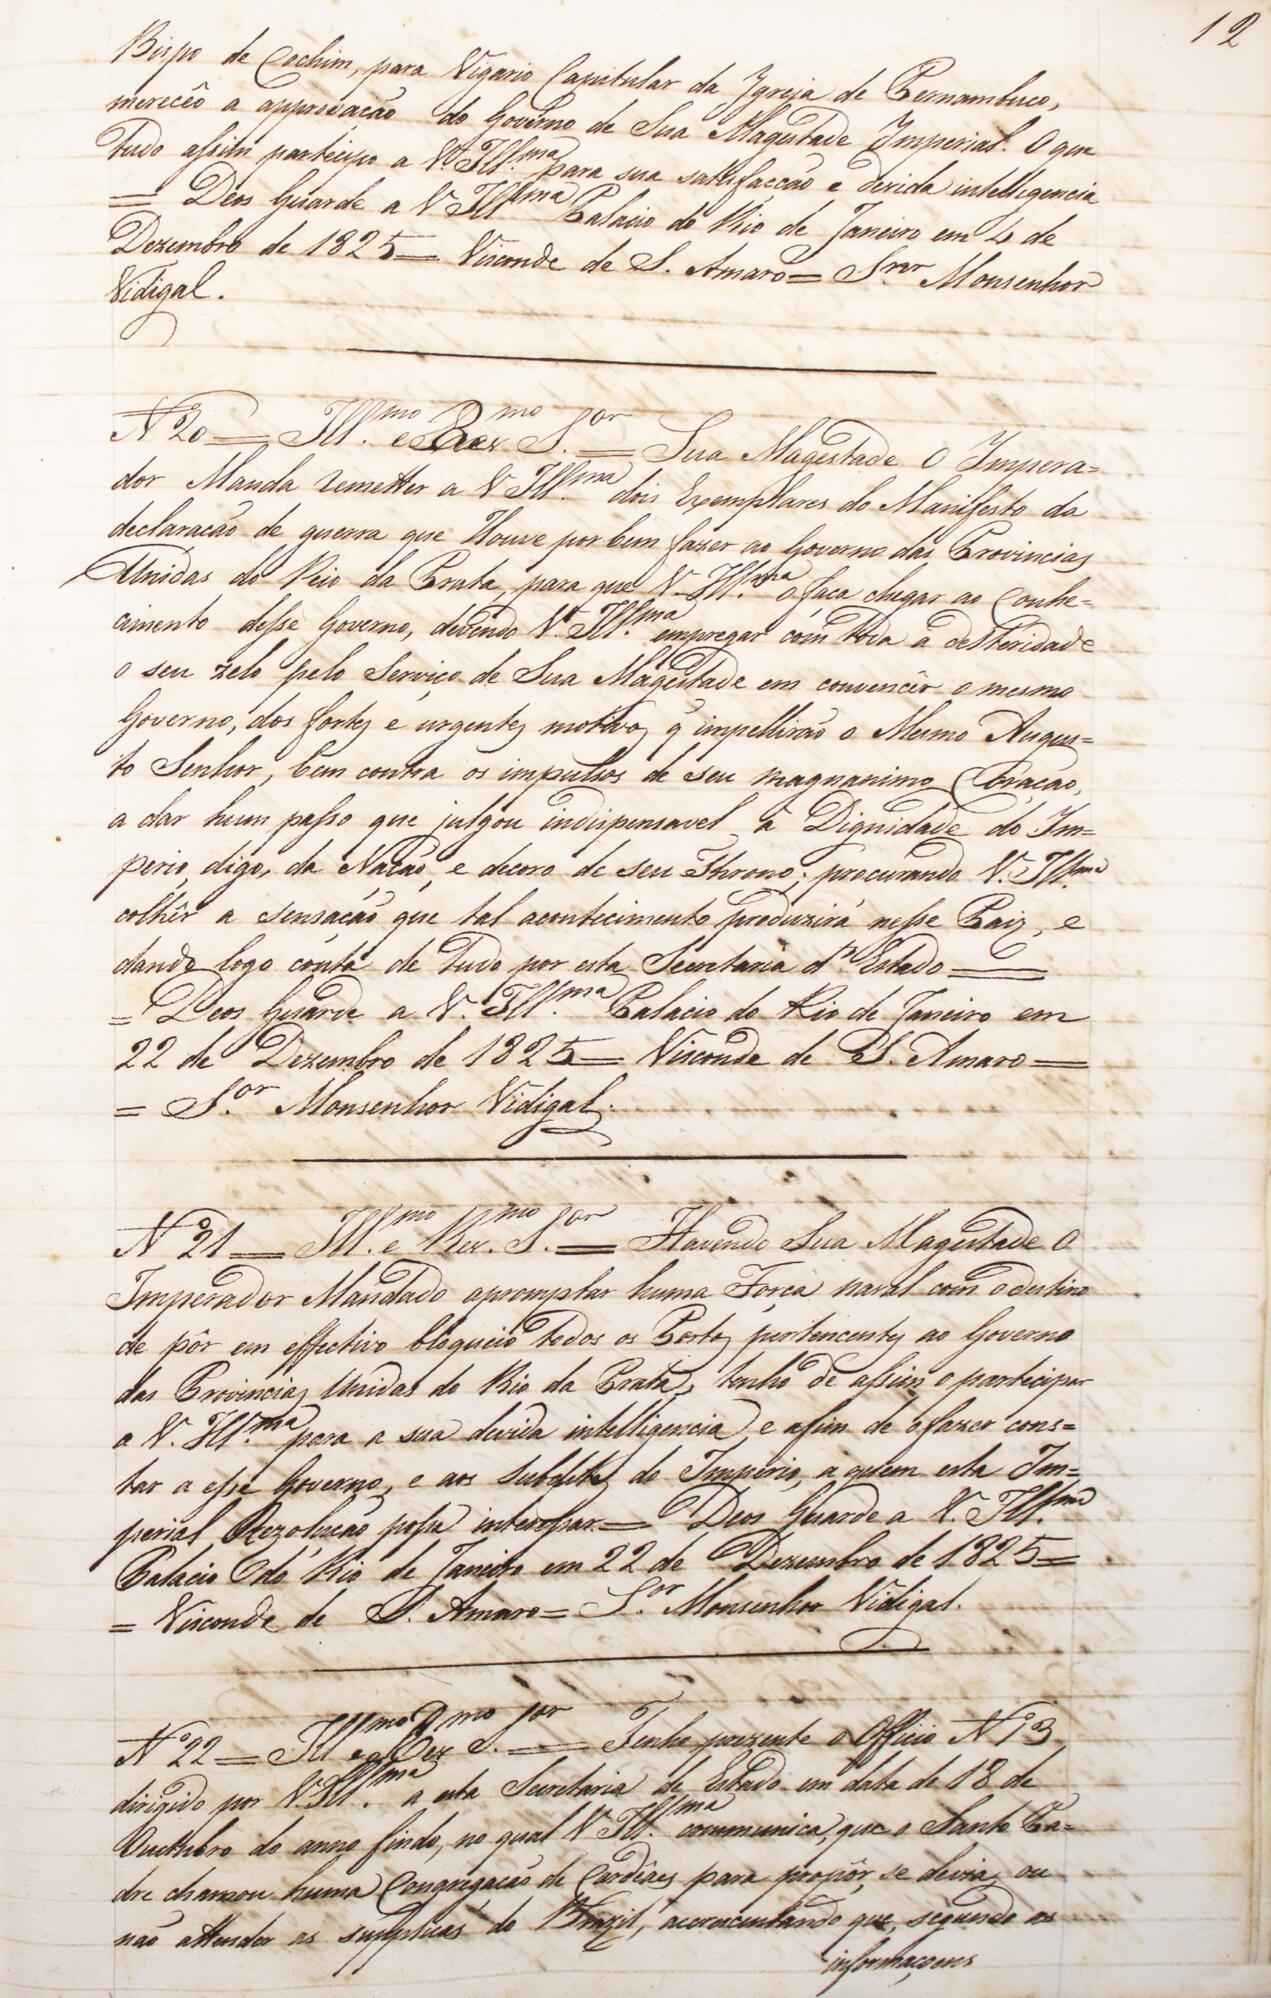 12
Bispo de Cochim, para Vigario Capitular da Igreja de Pernambuco,
merecêo a approvação do Governo de Sua Magestade Imperial. O que
tudo assim participo a V. Ill.ma para sua satisfacção e devida intelligencia
= Deos Guarde a V. Ill.ma Palacio do Rio de Janeiro em 4 de
Dezembro de 1825 = Visconde de S. Amaro = Snr Monsenhor
Vidigal.
N.º 20 = Ill.mo e Rev.mo S.or = Sua Magestade O Impera=
dor Manda remetter a V. Ill.ma dois Exemplares do Manifesto da
declaração de guerra que Houve por bem fazer ao Governo das Provincias
Unidas do Rio da Prata, para que V. Ill.ma o faça chegar ao Conhe=
cimento desse Governo, devendo V. Ill.ma empregar com toda a desteridade
o seu zelo pelo Serviço de Sua Magestade em convencêr o mesmo
Governo, dos fortes e urgentes motivos q̃ impellirão o Mesmo Augus=
to Senhor, bem contra os impulsos de seu magnanimo Coração,
a dar hum passo que julgou indispensavel á Dignidade do Im=
perio, digo, da Nação, e decoro de seu Throno; procurando V. Ill.ma
colhêr a sensação que tal acontecimento produzirá nesse Paiz, e
dando logo conta de tudo por esta Secretaria d'Estado =
= Deos Guarde a V. Ill.ma Palacio do Rio de Janeiro em
22 de Dezembro de 1825 = Visconde de S. Amaro =
= S.or Monsenhor Vidigal.
N.º 21 = Ill.mo e Rev.mo S.or = Havendo Sua Magestade O
Imperador Mandado apromptar huma Força naval com o destino
de pôr em effectivo bloqueio todos os Portos pertencentes ao Governo
das Provincias Unidas do Rio da Prata, tenho de assim o participar
a V. Ill.ma para a sua devida intelligencia, e afim de o fazer cons=
tar a esse Governo, e aos Subditos do Imperio, a quem esta Im=
perial Rezolução possa interessar = Deos Guarde a V. Ill.ma
Palacio do Rio de Janeiro em 22 de Dezembro de 1825 =
= Visconde de S. Amaro = S.or Monsenhor Vidigal.
N.º 22 = Ill.mo e Rev.mo S.or = Tenho prezente o Officio N.º 13
dirigido por V. Ill.ma a esta Secretaria de Estado em data de 18 de
Outubro do anno findo, no qual V. Ill.ma communica, que o Santo Pa=
dre chamou huma Congregação de Cardêaes para propôr, se devia, ou
não attender as supplicas do Brazil, acrescentando que, segundo as
informaçoens